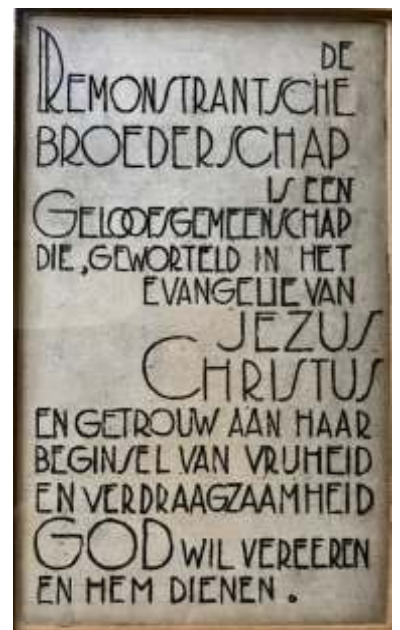 DE
REMONSTRANTSCHE
BROEDERSCHAP
IS EEN
GELOOFSGEMEENSCHAP
DIE, GEWORTELD IN HET
EVANGELIE VAN
JEZUS
CHRISTUS
EN GETROUW AAN HAAR
BEGINSEL VAN VRIJHEID
EN VERDRAAGZAAMHEID
GOD WIL VEREEREN
EN HEM DIENEN.